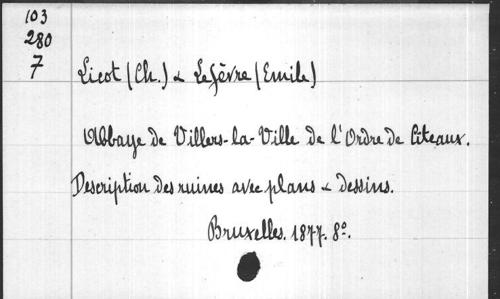 103
280
7
Licot (Ch.) & Lefèvre (Emile)
Abbaye de Villers-la-Ville de l'Ordre de Citeaux.
Description des ruines avec plans & dessins.
Bruxelles. 1877. 8°.